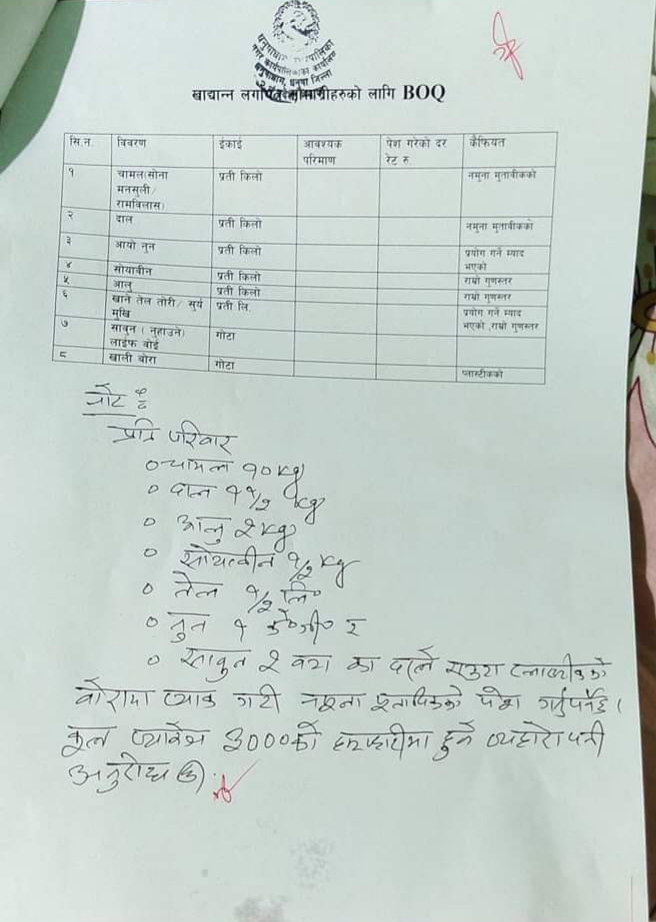 नगर कार्यपालिकाको कार्यालय
खाद्यान्न लगायत सामाग्रीहरुको लागि BOQ
सि.न. विवरण ईकाई आवश्यक परिमाण पेश गरेको दर रेट रु कैफियत
१ चामल(सोना मनसुली/ रामविलास) प्रती किलो नमुना मुताबीकको
२ दाल प्रती किलो नमुना मुताबीकको
३ आयो नुन प्रती किलो प्रयोग गर्ने म्याद भएको
४ सोयाबीन प्रती किलो राम्रो गुणस्तर
५ आलु प्रती किलो राम्रो गुणस्तर
६ खाने तेल तोरी/ सुर्य मुखि प्रती लि. प्रयोग गर्ने म्याद भएको ,राम्रो गुणस्तर
७ साबुन ( नुहाउने) लाईफ बोई गोटा
८ खाली बोरा गोटा प्लास्टीकको
नोट
प्रति परिवार
० चामल १० kg
० दाल १ १/२ kg
० आलु २ kg
० सोयाबीन १/२ kg
० तेल १/२ लि०
० नुन १ के०जी० र
० साबुन २ वटा का दरले एउटा प्लाष्टीकको
बोरामा प्याक गरी नमुना मुताविकको पेश गर्नुपर्नेछ।
कुल प्याकेज ३०००को हाराहारीमा हुने व्यहोरा पनी
अनुरोध छ।